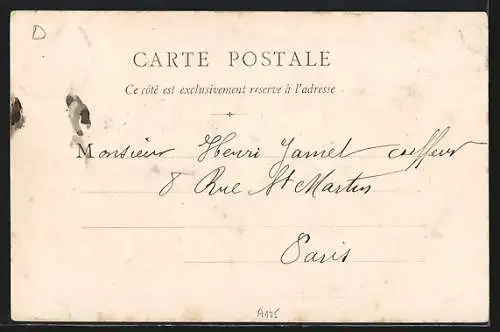 D
CARTE POSTALE
Ce côté est exclusivement reservé à l'adresse
Monsieur Henri Jamet coiffeur
8 Rue St Martin
Paris
A175